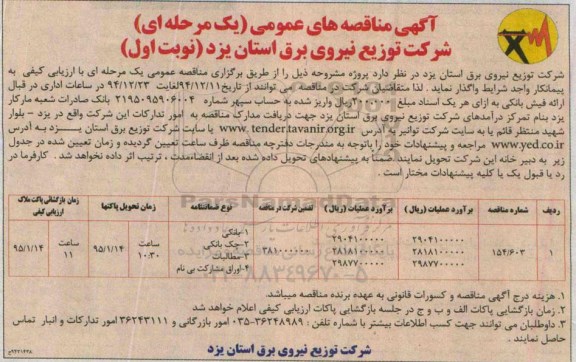 آگهی مناقصه های عمومی (یک مرحله ای)
شرکت توزیع نیروی برق استان یزد (نوبت اول)
شرکت توزیع نیروی برق استان یزد در نظر دارد پروژه مشروحه ذیل را از طریق برگزاری مناقصه عمومی یک مرحله ای با ارزیابی کیفی به
پیمانکار واجد شرایط واگذار نماید . لذا متقاضیان شرکت در مناقصه می توانند از تاریخ ۹۴/۱۲/۱۱ لغایت ۹۴/۱۲/۲۳ در ساعات اداری در قبال
ارائه فیش بانکی به ازای هر یک اسناد مبلغ ریال واریز شده به حساب سپهر شماره ۲۱۹۵۰۹۵۹۰۶۰۰۴ بانک صادرات شعبه مارکار
یزد بنام تمرکز درآمدهای شرکت توزیع نیروی برق استان یزد جهت دریافت مدارک مناقصه به امور تدارکات این شرکت واقع در یزد - بلوار
شهید منتظر قائم یا به سایت شرکت توانیر به آدرس www.tender.tavanir.org.ir و یا سایت شرکت توزیع برق استان یزد به آدرس
www.yed.co.ir مراجعه و پیشنهادات خود را باتوجه به مندرجات دفترچه مناقصه ظرف ساعت تعیین گردیده و زمان تعیین شده در جدول
زیر به دبیر خانه این شرکت تحویل نمایند .ضمناً به پیشنهادهای تحویل داده شده بعد از انقضاءمدت ، ترتیب اثر داده نخواهد شد . کارفرما در
رد یا قبول یک یا کلیه پیشنهادات مختار است .
ردیف شماره مناقصه برآورد عملیات (ریال) برآورد عملیات (ریال) تضمین شرکت در مناقصه نوع ضمانتنامه زمان تحویل پاکتها زمان بازگشائی پاکت ملاک ارزیابی کیفی
۱ ۱۵۴/۶۰۳
۲۹۰۴۱۰۰۰۰۰ ۲۹۰۴۱۰۰۰۰۰ ۱-بانکی
۲۸۱۸۱۰۰۰۰۰ ۲۸۱۸۱۰۰۰۰۰ ۲-چک بانکی
۲۹۸۷۷۰۰۰۰۰ ۲۹۸۷۷۰۰۰۰۰ ۳-مطالبات
۴-اوراق مشارکت بی نام
ساعت ۱۰:۳۰ ۹۵/۱/۱۴
ساعت ۱۱ ۹۵/۱/۱۴
۱. هزینه درج آگهی مناقصه و کسورات قانونی به عهده برنده مناقصه میباشد.
۲. زمان بازگشایی پاکات الف و ب و ج در جلسه بازگشایی پاکات ارزیابی کیفی اعلام خواهد شد
۳. داوطلبان می توانند جهت کسب اطلاعات بیشتر با شماره تلفن : ۳۶۲۴۸۹۸۹-۰۳۵ امور بازرگانی و ۳۶۲۴۳۱۱۱ امور تدارکات و انبار تماس
حاصل نمایند .
شرکت توزیع نیروی برق استان یزد